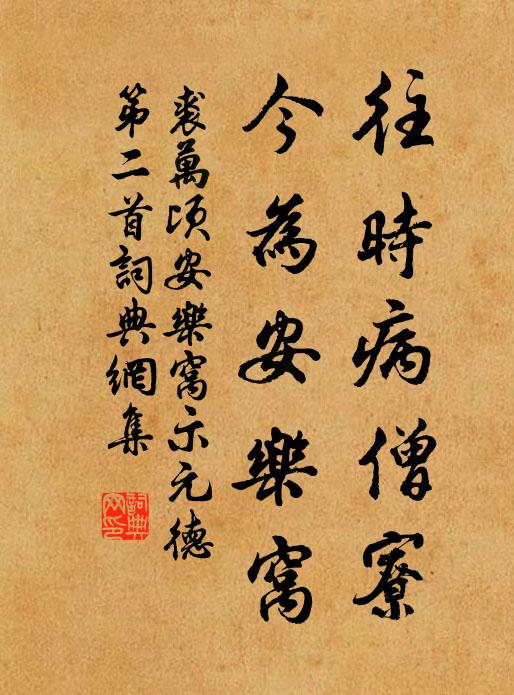 往時病僧寮
今為安樂窩
裘萬頃安樂窩示元德
第二首詞典網集
詞典
网印